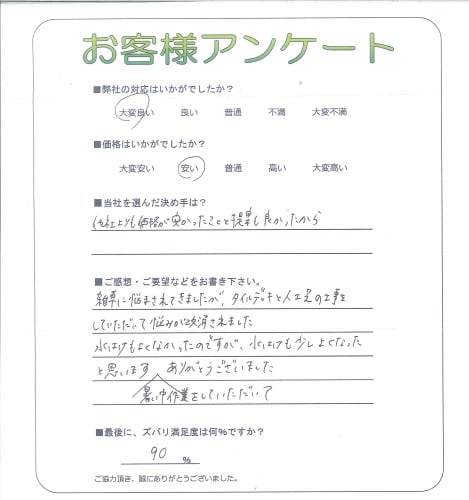 お客様アンケート
■弊社の対応はいかがでしたか？
大変良い 良い 普通 不満 大変不満
■価格はいかがでしたか？
大変安い 安い 普通 高い 大変高い
■当社を選んだ決め手は？
他社よりも価格が安かったことと提案も良かったから
■ご感想・ご要望などをお書き下さい。
雑草に悩まされてきましたが、タイルデッキと人工芝の工事を
していただいて悩みが解消されました
水はけもよくなかったのですが、水はけも少しよくなった
と思います ありがとうございました
暑い中作業をしていただいて
■最後に、ズバリ満足度は何%ですか？
90 %
ご協力頂き、誠にありがとうございました。